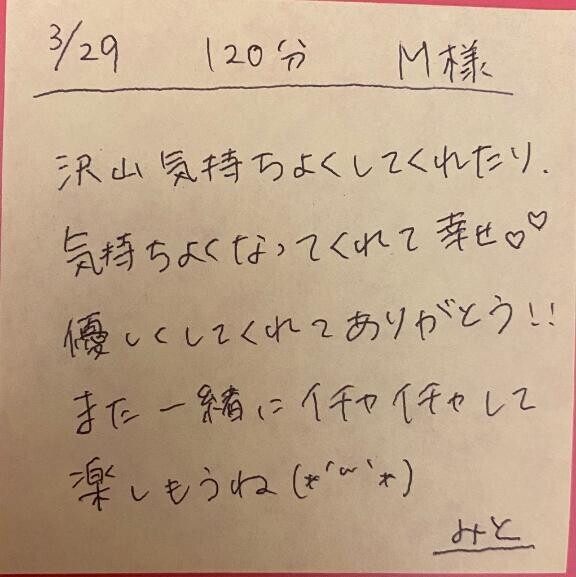 3/29 120分 M様
沢山気持ちよくしてくれたり、
気持ちよくなってくれて幸せ♡♡
優しくしてくれてありがとう!!
また一緒にイチャイチャして
楽しもうね(*´꒳`*)
みと